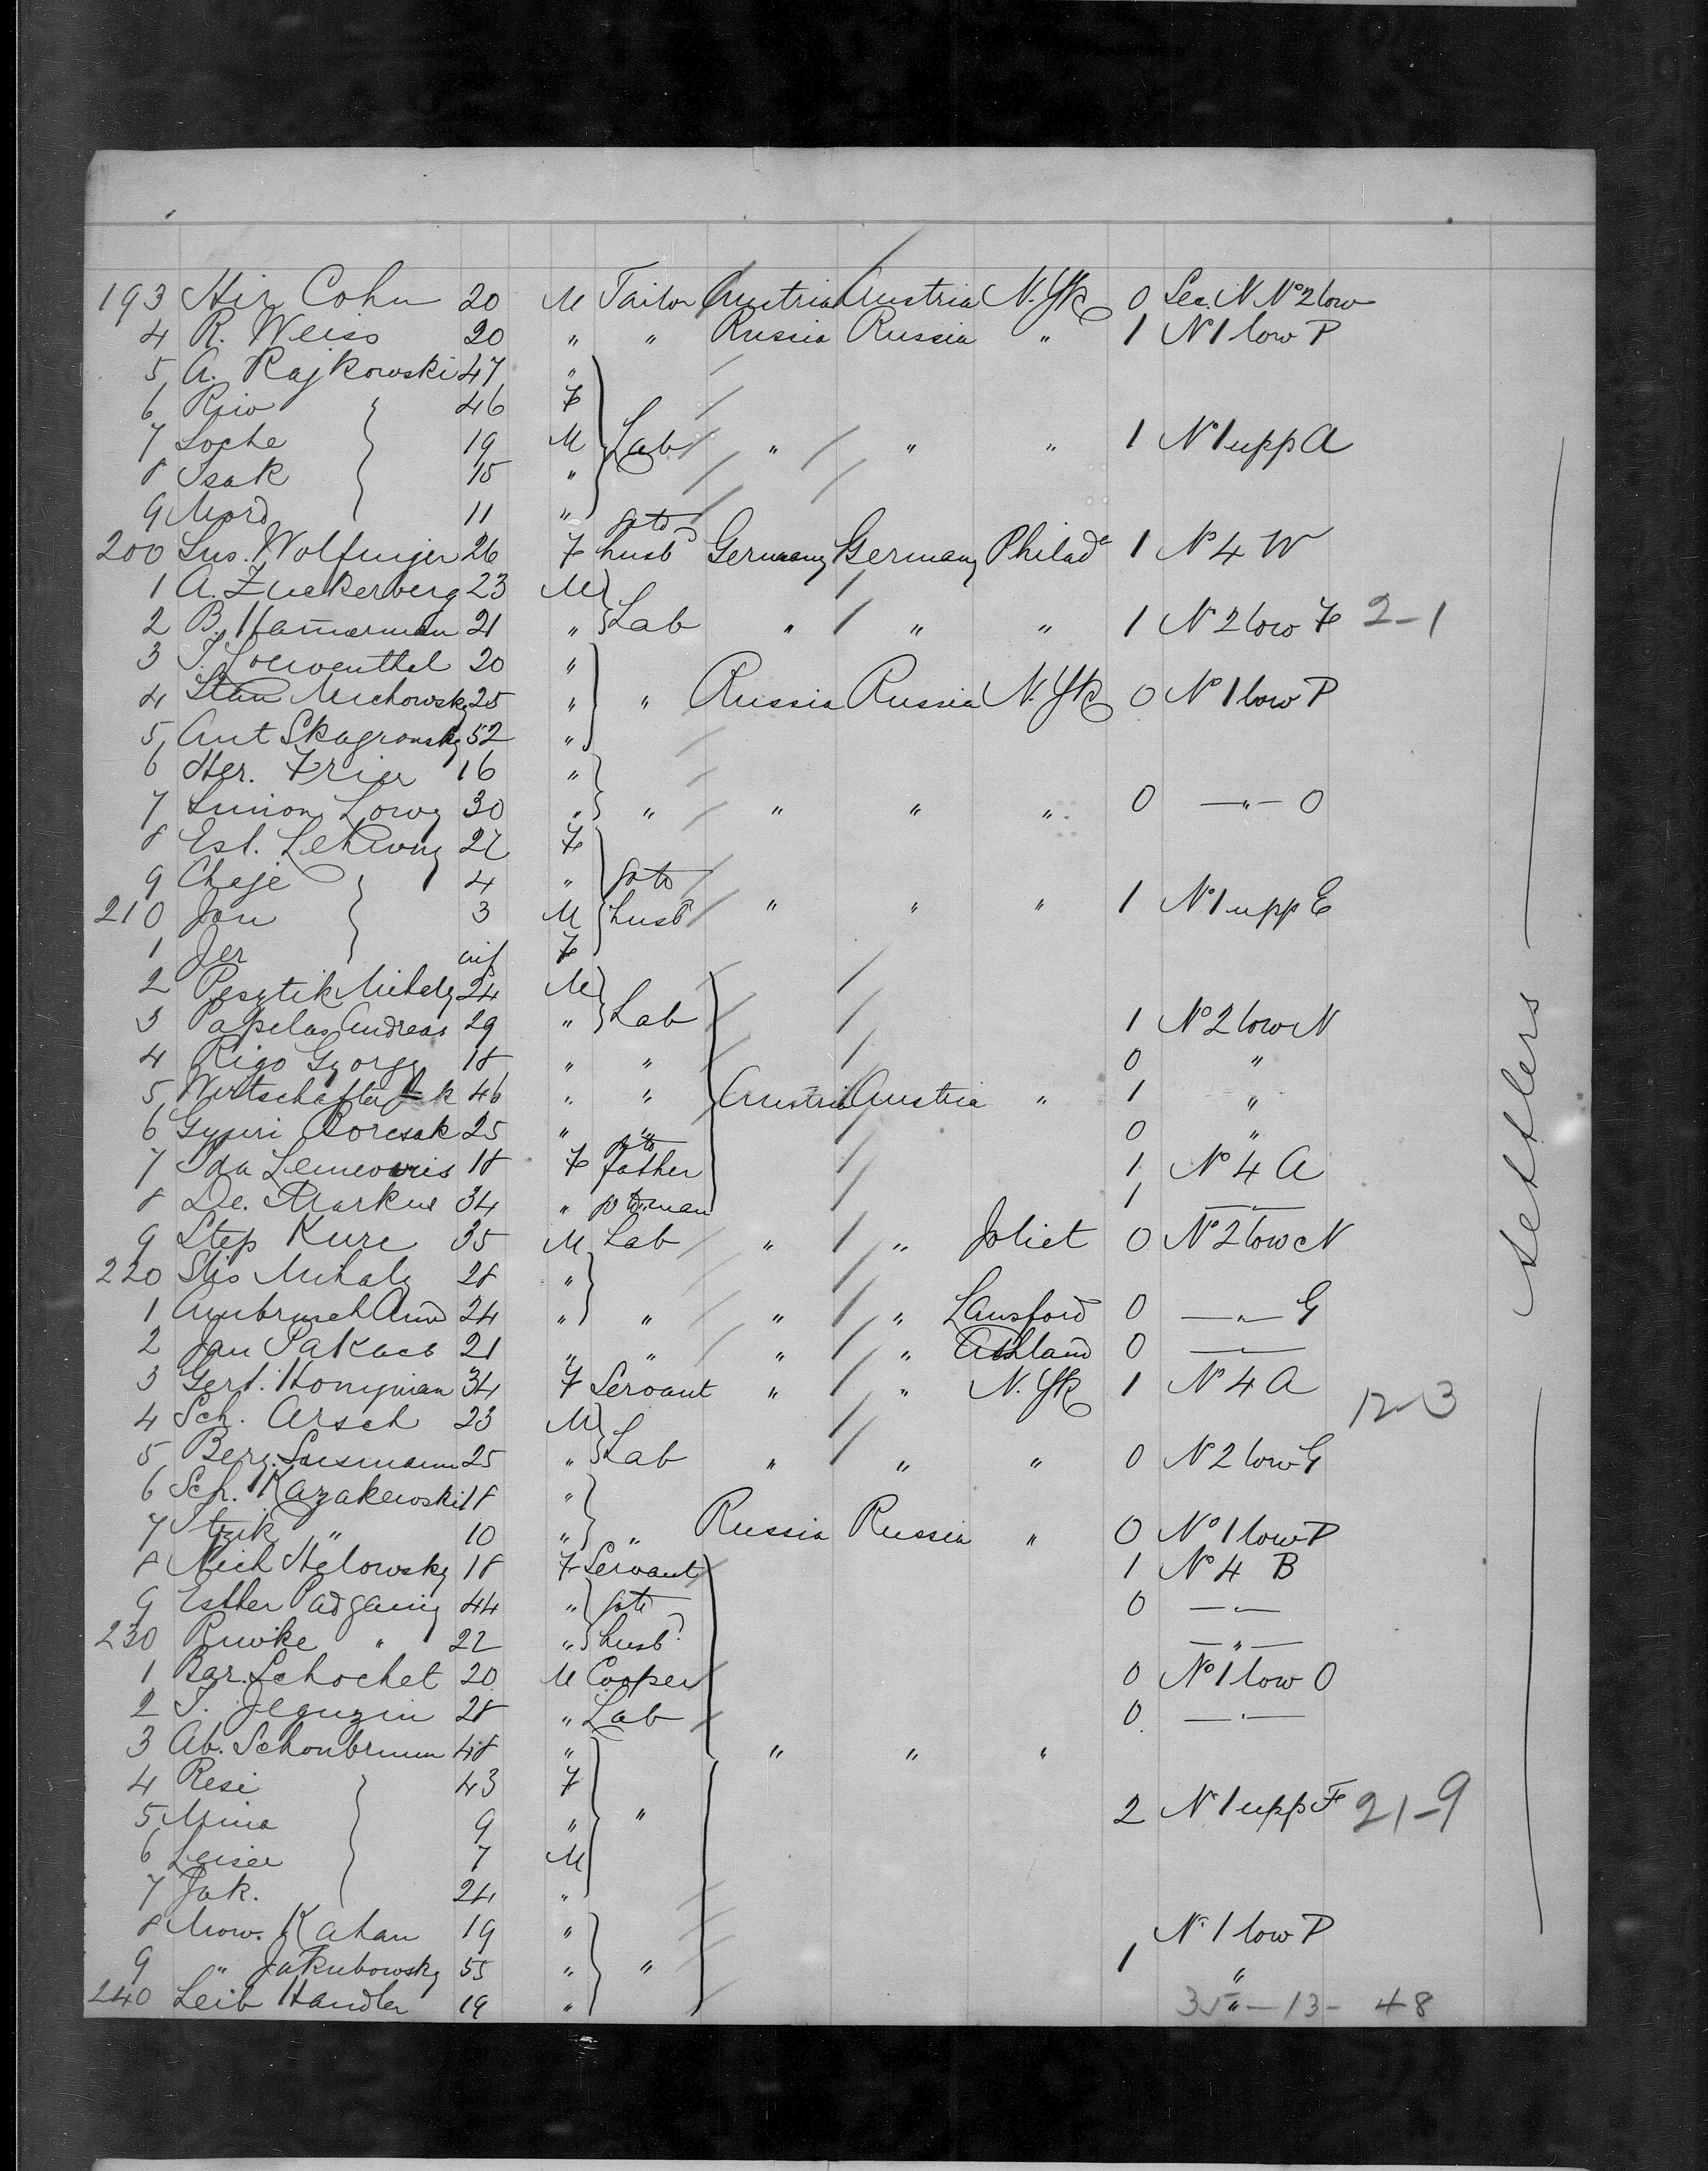 193 Hir Cohn 20 M Tailor Austria Austria N.Yk 0 Sec. N No 2 low
4 R. Weiss 20 " " Russia Russia " 1 N 1 low P
5 A. Rajkowski 47 "
6 Riw 46 F
7 Soche 19 M Lab " " " 1 No 1 upp A
8 Isak 15 "
9 Mord 11 "
200 Sus. Wolfinger 26 F go to husb Germany Germany Philad 1 No 4 W
1 A. Zuckerberg 23 M
2 B. Hamerman 21 " Lab " " " 1 N 2 low F 2-1
3 J. Loewenthal 20 "
4 Stan Michowsky 25 " " Russia Russia N.Yk 0 No 1 low P
5 Ant 52 "
6 Her. 16 "
7 Simon Lowy 30 " " " " " 0 — " — O
8 Est. 22 F
9 Cheje 4 " go to
210 Jan 3 M husb " " " 1 No 1 upp E
1 Jer inf F
2 Mihaly 24 M
3 Andreas 29 " Lab 1 No 2 low N
4 Rigo Gyorgy 18 " " 0 "
5 Wirtschafter 46 " " Austria Austria " 1 "
6 Gyuri 25 " " 0 "
7 Ida 18 F go to father 1 No 4 A
8 De. Markus 34 " go to man 1 — " —
9 Step Kure 35 M Lab " " Joliet 0 No 2 low N
220 Mihaly 28 "
1 And 24 " " " " Lansford 0 — " — G
2 Jan 21 " " " " Ashland 0 — " —
3 Gert. Honigman 34 F Servant " " N.Yk 1 No 4 A
4 Sch. Arsch 23 M 12-3
5 Berg. Susmann 25 " Lab " " " 0 N 2 low G
6 Sch. Kazakewski 18 "
7 Itzik " 10 " " Russia Russia " 0 No 1 low P
8 18 F Servant 1 No 4 B
9 Esther 44 " go to 0 — " —
230 Riwke " 22 " husb — " —
1 Bar. Schochet 20 M Cooper 0 No 1 low O
2 28 " Lab 0 — " —
3 Ab. Schonbrunn 48 " " " "
4 Resi 43 F
5 Mina 9 " " 2 N 1 upp F 21-9
6 Leiser 7 M
7 Jak. 24 "
8 Mow. Kahan 19 " N 1 low P
9 " Jakubowsky 55 " " 1 "
240 Leib Handler 19 " " 35 — 13 — 48
settlers